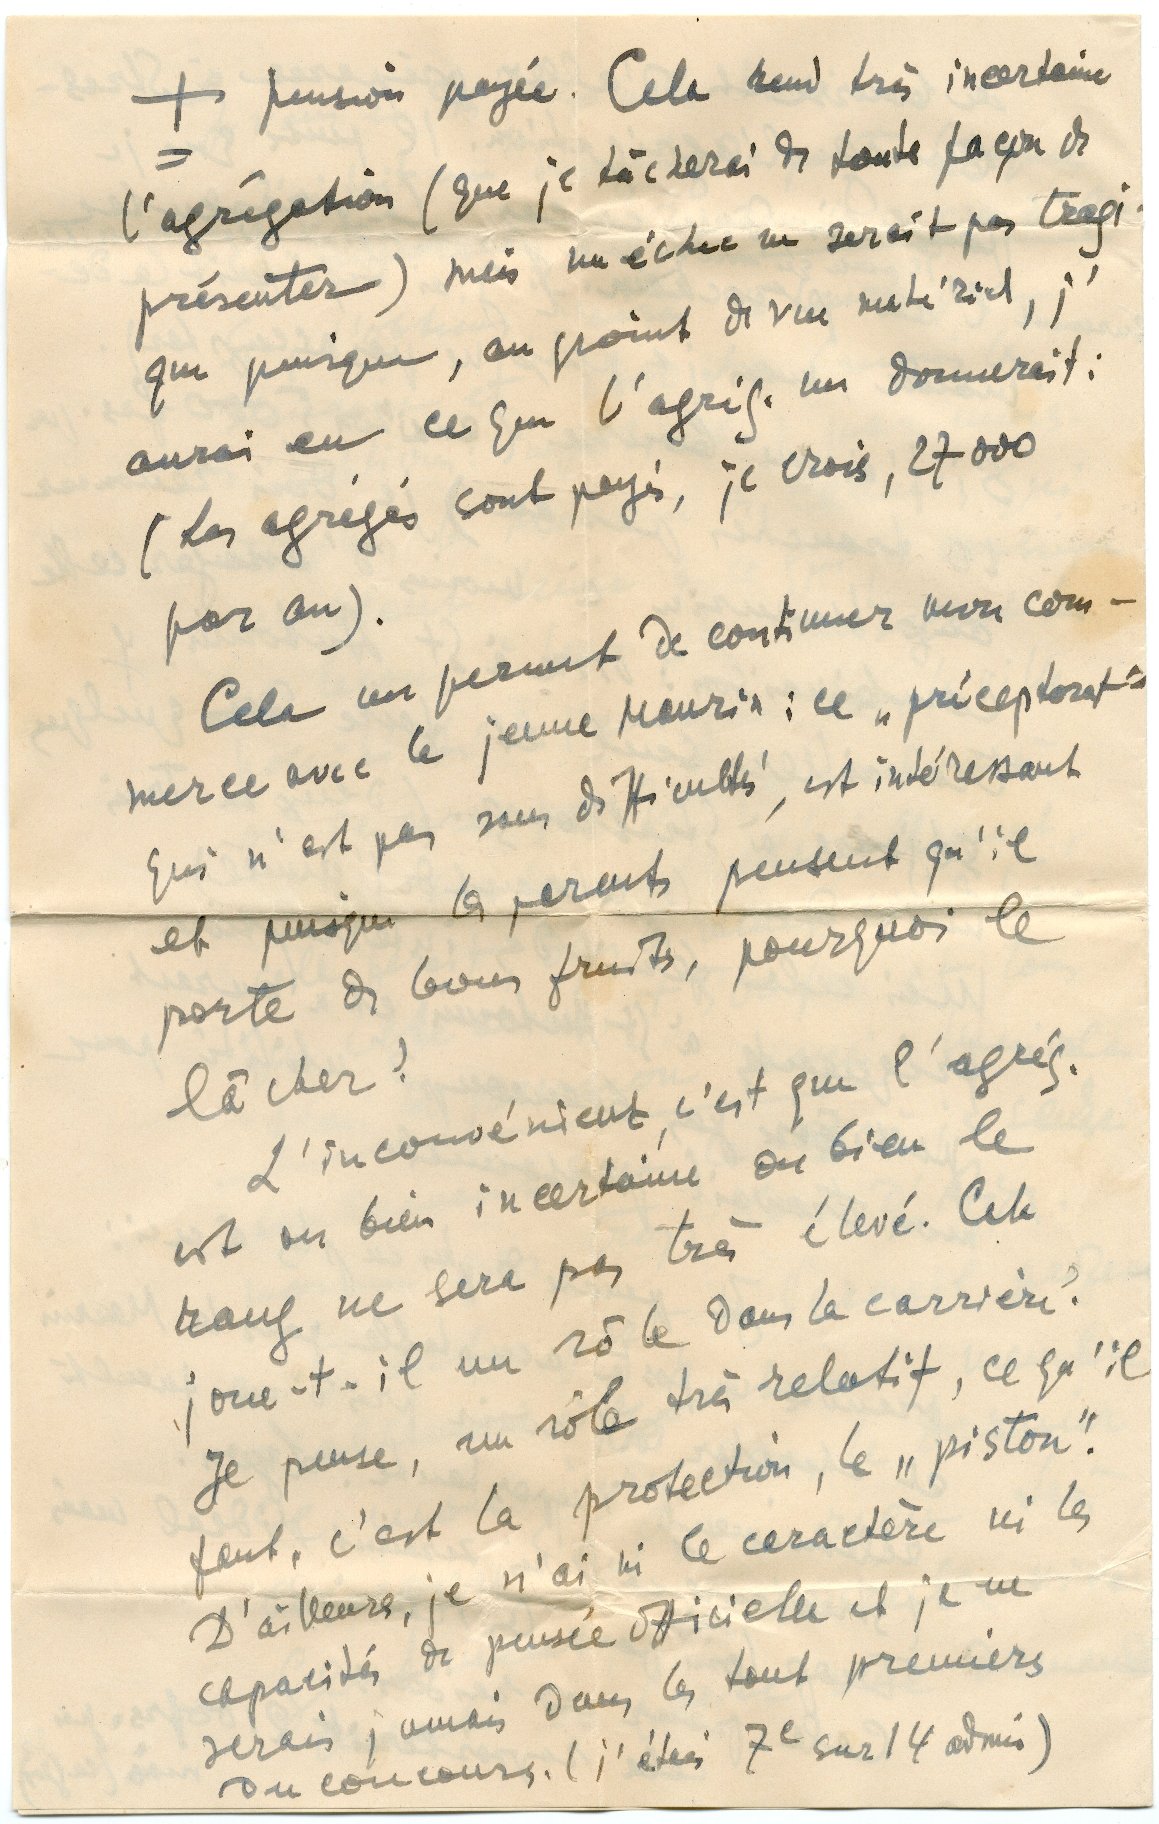 + pension payée. Cela rend très incertaine
=
l'agrégation (que je tâcherai de toute façon de
présenter) mais un échec ne serait pas tragi-
que puisque, au point de vue matériel, j'
aurai eu ce que l'agrég. me donnerait:
(Les agrégés sont payés, je crois, 27000
par an).
Cela me permet de continuer mon com-
merce avec le jeune Maurin: ce „préceptorat"
qui n'est pas sans difficultés, est intéressant
et puisque les parents pensent qu'il
porte de bons fruits, pourquoi le
lâcher?
L'inconvénient, c'est que l'agrég.
est ou bien incertaine ou bien le
rang ne sera pas très élevé. Cela
joue-t-il un rôle dans la carrière?
Je pense, un rôle très relatif, ce qu'il
faut, c'est la protection, le „piston".
D'ailleurs, je n'ai ni le caractère ni les
capacités de pensée officielle et je ne
serais jamais dans les tout premiers
du concours. (j'étais 7e sur 14 admis)